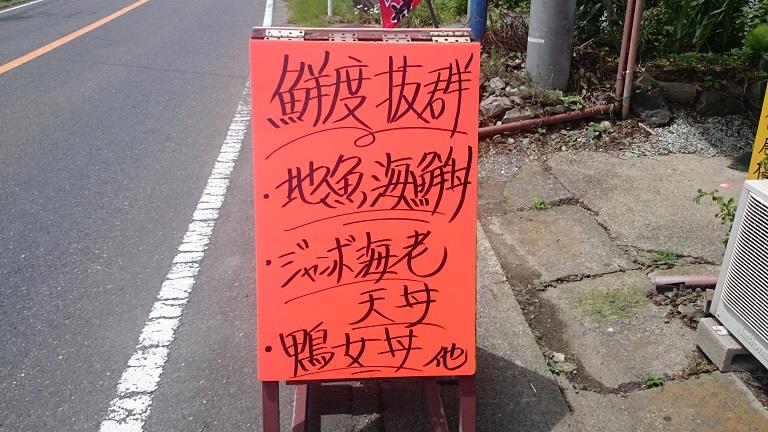 鮮度抜群
・地魚海鮮丼
・ジャンボ海老
天丼
・鴨女丼 他